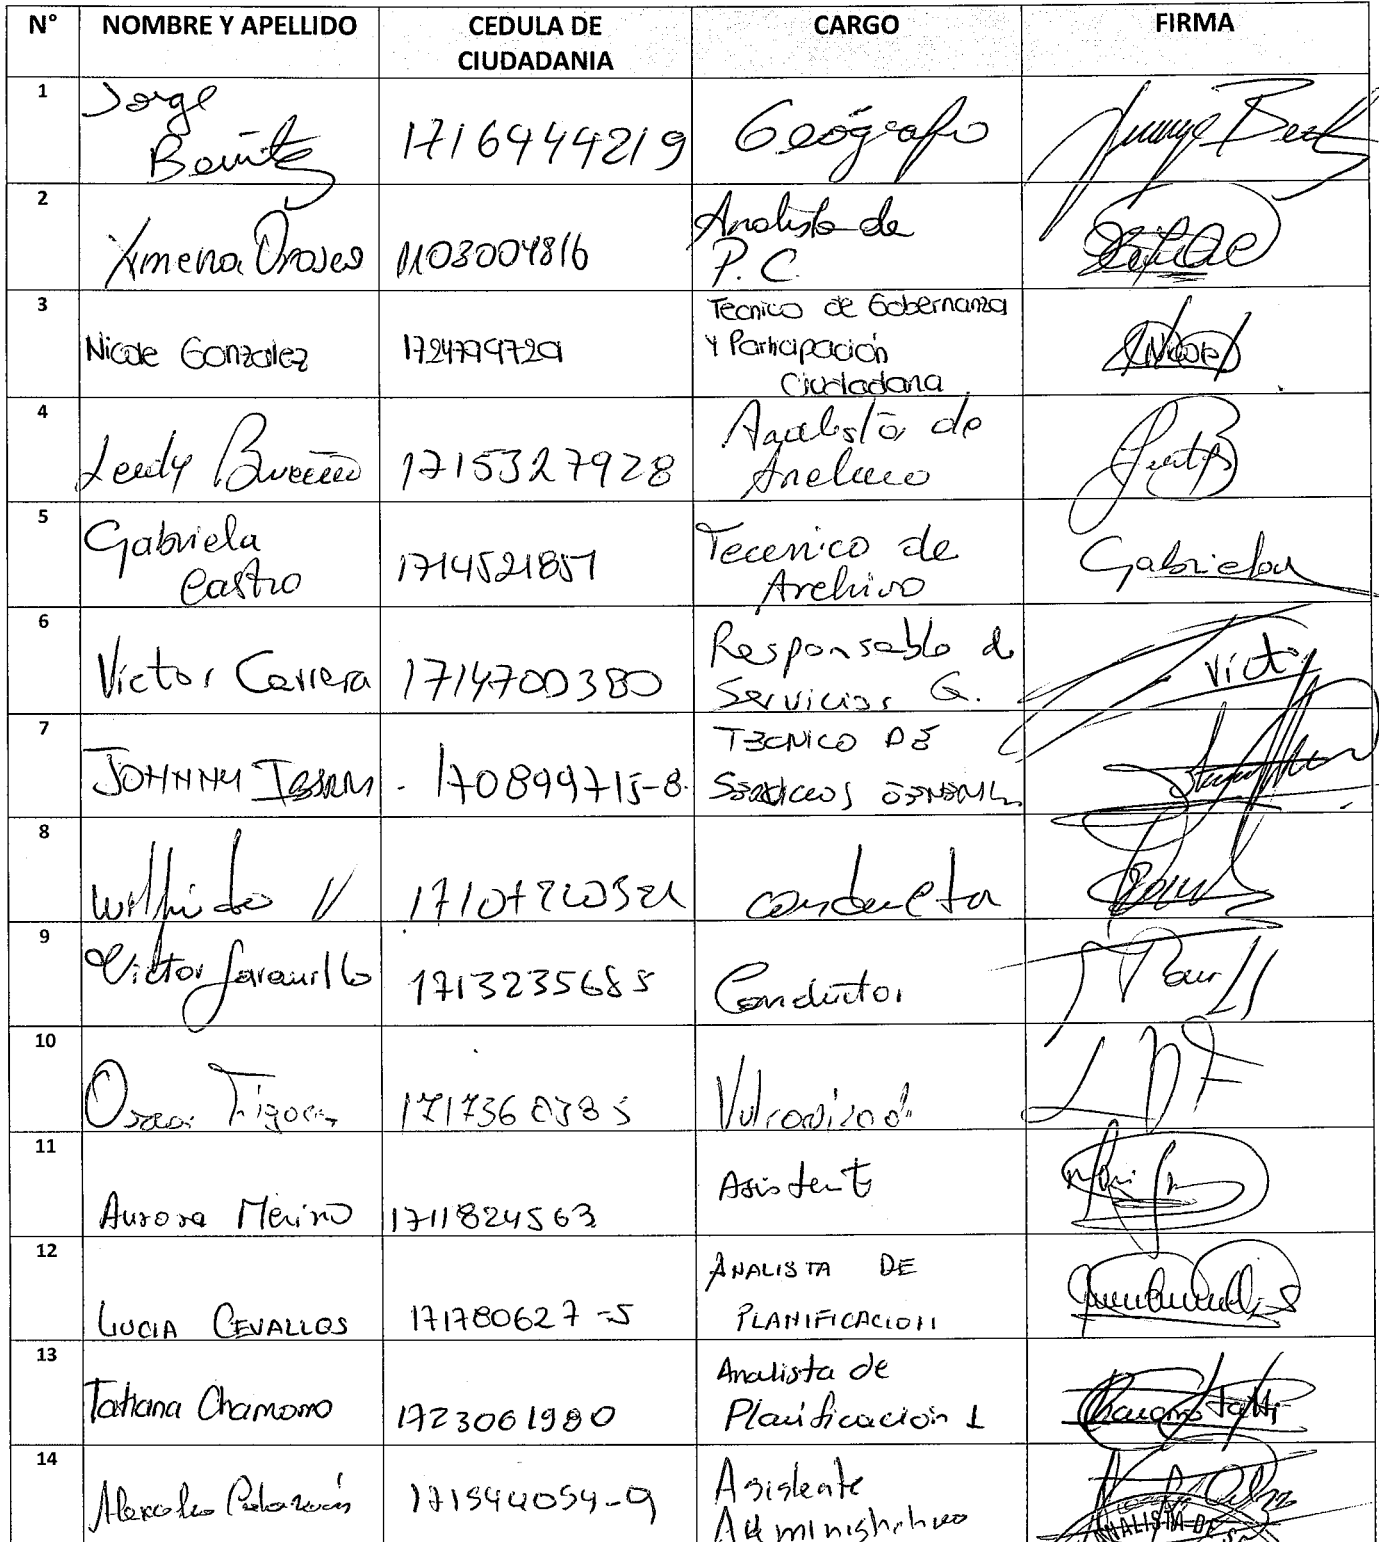 N° NOMBRE Y APELLIDO CEDULA DE CIUDADANIA CARGO FIRMA
1 Jorge Benitez 1716944219 Geógrafo
2 Ximena 1103004816 Analista de P. C.
3 Nicole Gonzalez 1724799729 Tecnico de Gobernanza y Participación Ciudadana
4 Leidy 1715327928 Analista de
5 Gabriela Castro 1714521851 Tecenico de Archivo Gabriela
6 Victor Carrera 1714700380 Responsable de Servicios G. Victor
7 JOHNNY 170899715-8 TECNICO DE
8 Wilfrido conductor
9 Victor Jaramillo 1713235685 Conductor
10 Oscar
11 Aurora Merino 1711824563 Asistente
12 LUCIA CEVALLOS 171780627-5 ANALISTA DE PLANIFICACION
13 Tatiana Chamorro 1723061980 Analista de Planificación 1
14 171544054-9 Asistente Administrativo
ANALISTA DE